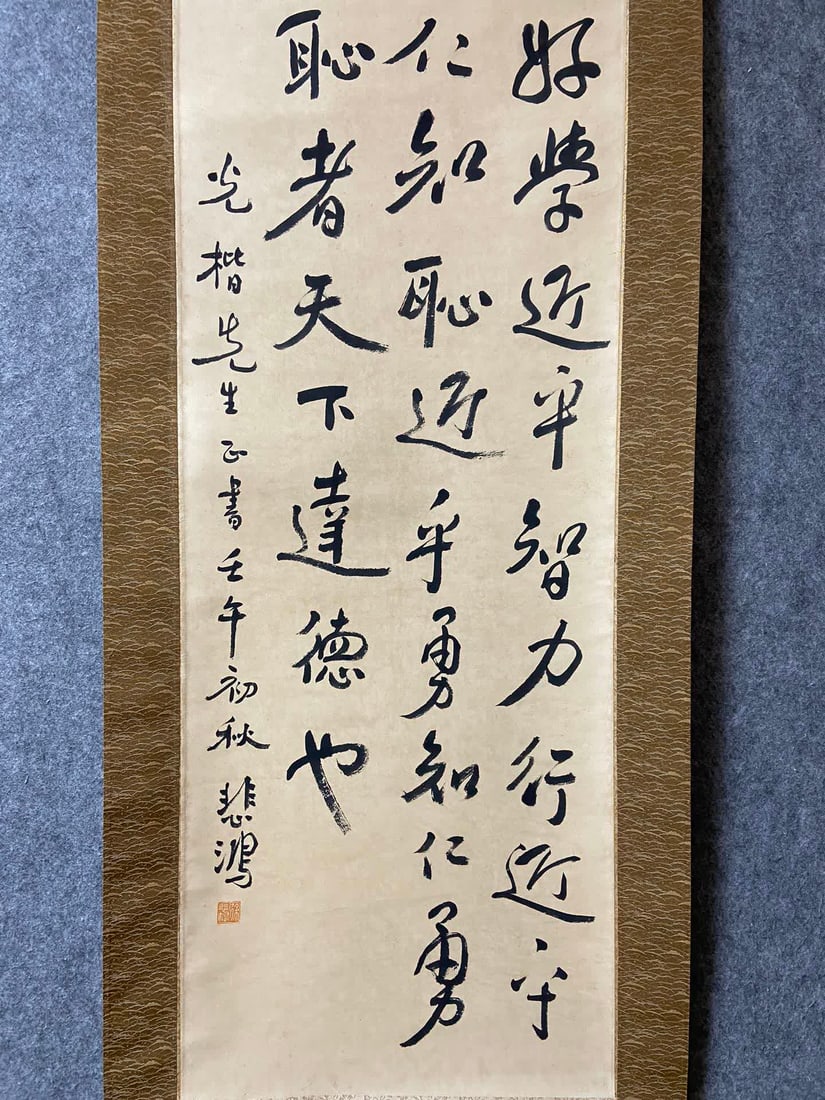 好學近乎智力行近乎
仁知恥近乎勇知仁勇
恥者天下達德也
光楷先生正書壬午初秋悲鴻